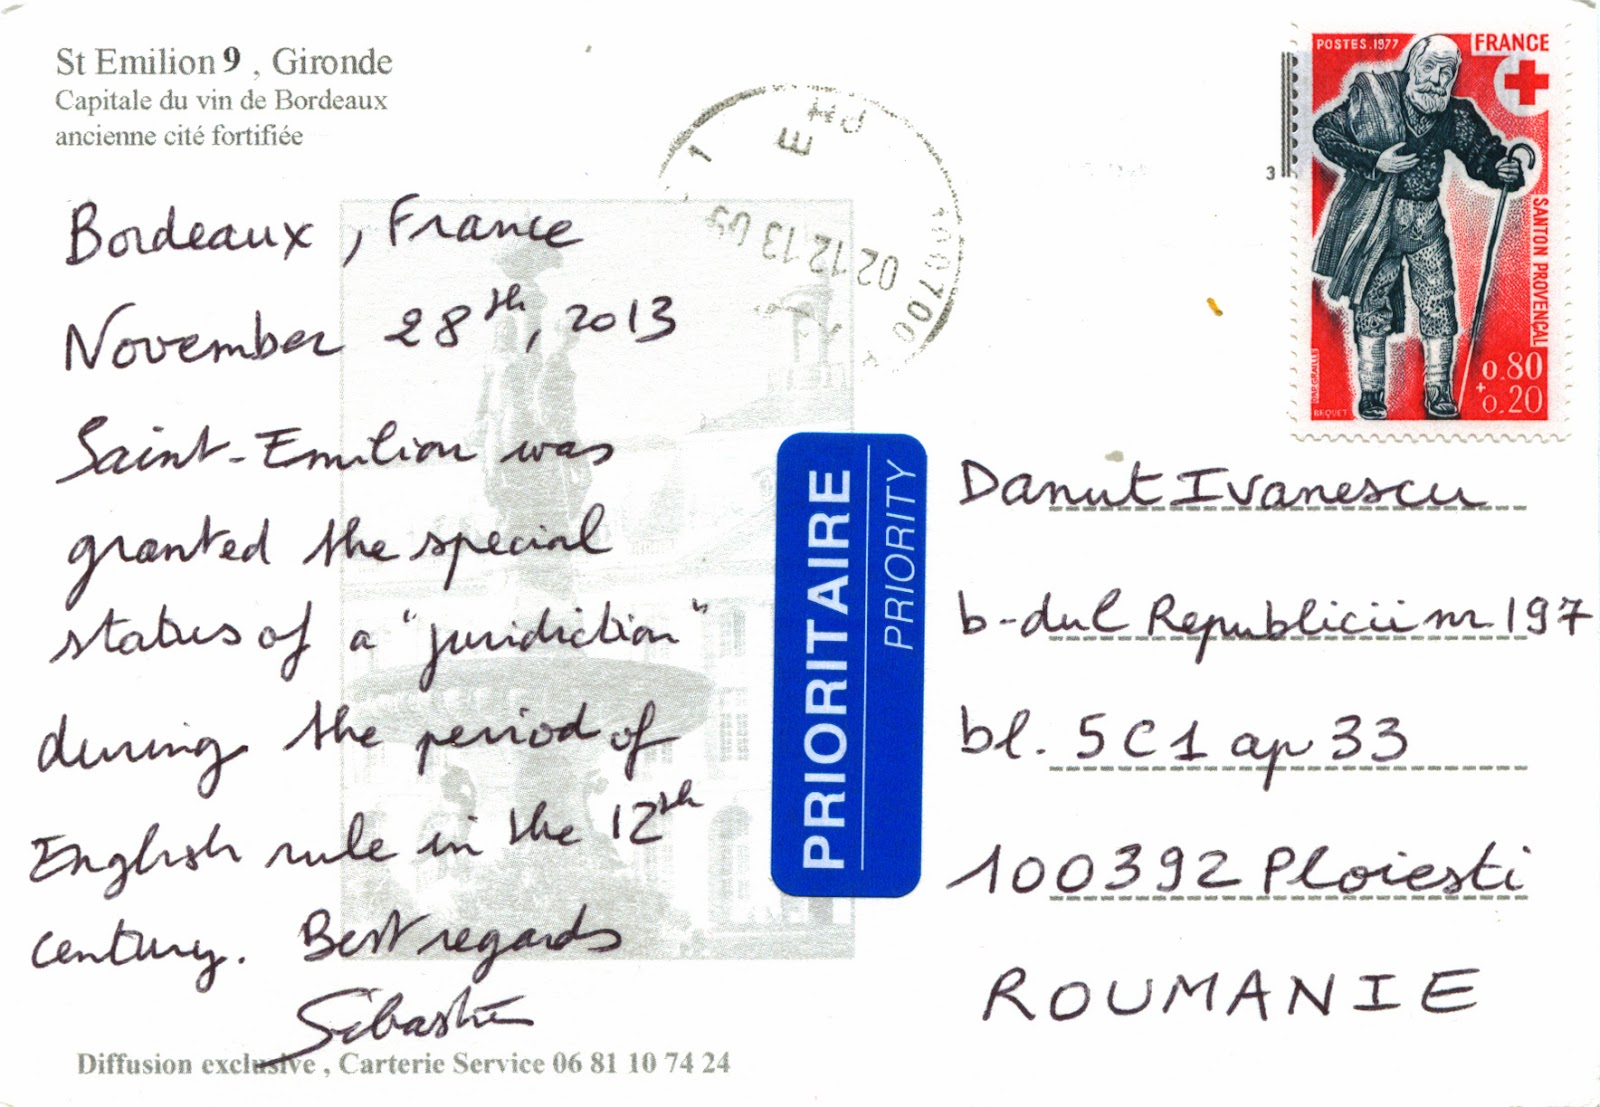 St Emilion 9 , Gironde
Capitale du vin de Bordeaux
ancienne cité fortifiée
Bordeaux, France
November 28th, 2013
Saint-Emilion was
granted the special
status of a "juridiction"
during the period of
English rule in the 12th
century. Best regards
Sébastien
Diffusion exclusive , Carterie Service 06 81 10 74 24
02 12 13
POSTES.1977
FRANCE
SANTON PROVENÇAL
0.80
+0.20
BEQUET
3
PRIORITAIRE
PRIORITY
Danut Ivanescu
b-dul Republicii nr 197
bl. 5C1 ap 33
100392 Ploiesti
ROUMANIE